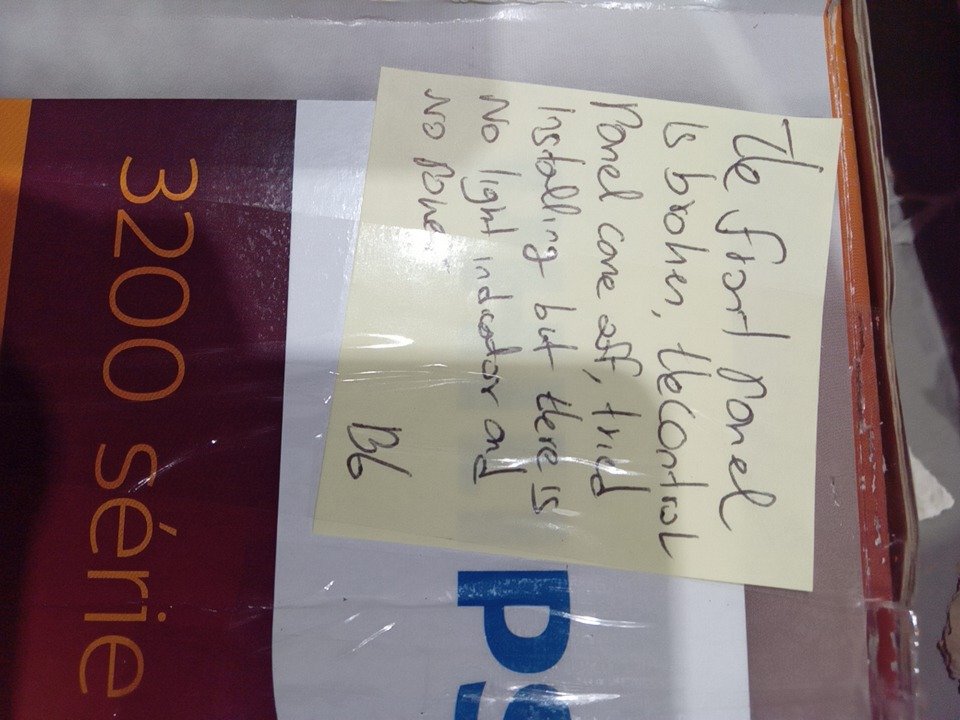 The front panel
is broken, the control
Panel came off, tried
Installing but there is
No light indicator and
No Power.
B6
3200 série
PS